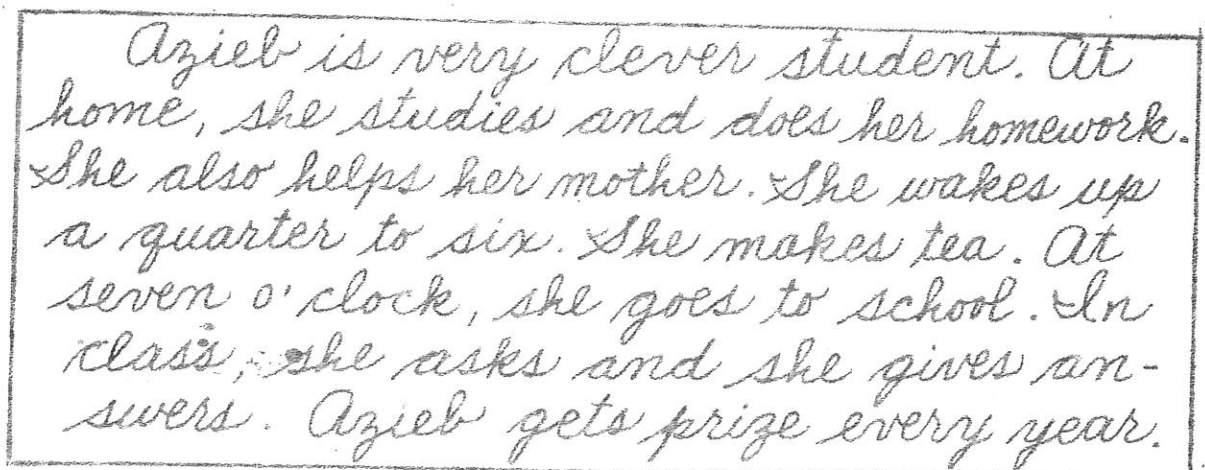 Azieb is very clever student. At
home, she studies and does her homework.
She also helps her mother. She wakes up
a quarter to six. She makes tea. At
seven o'clock, she goes to school. In
class, she asks and she gives an-
swers. Azieb gets prize every year.